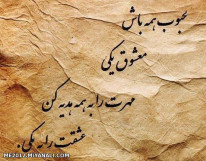 محبوب همه باش
معشوق یکی
مهرت را به همه هدیه کن
عشقت را به یکی.
ME2012.MIYANALI.COM